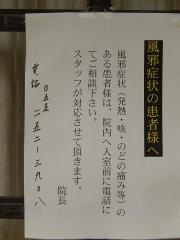 風邪症状の患者様へ
風邪症状（発熱・咳・のどの痛み等）の
ある患者様は、院内へ入室前に電話に
てご相談下さい。
スタッフが対応させて頂きます。
院長
電話 〇五五
二五二ー三九〇八